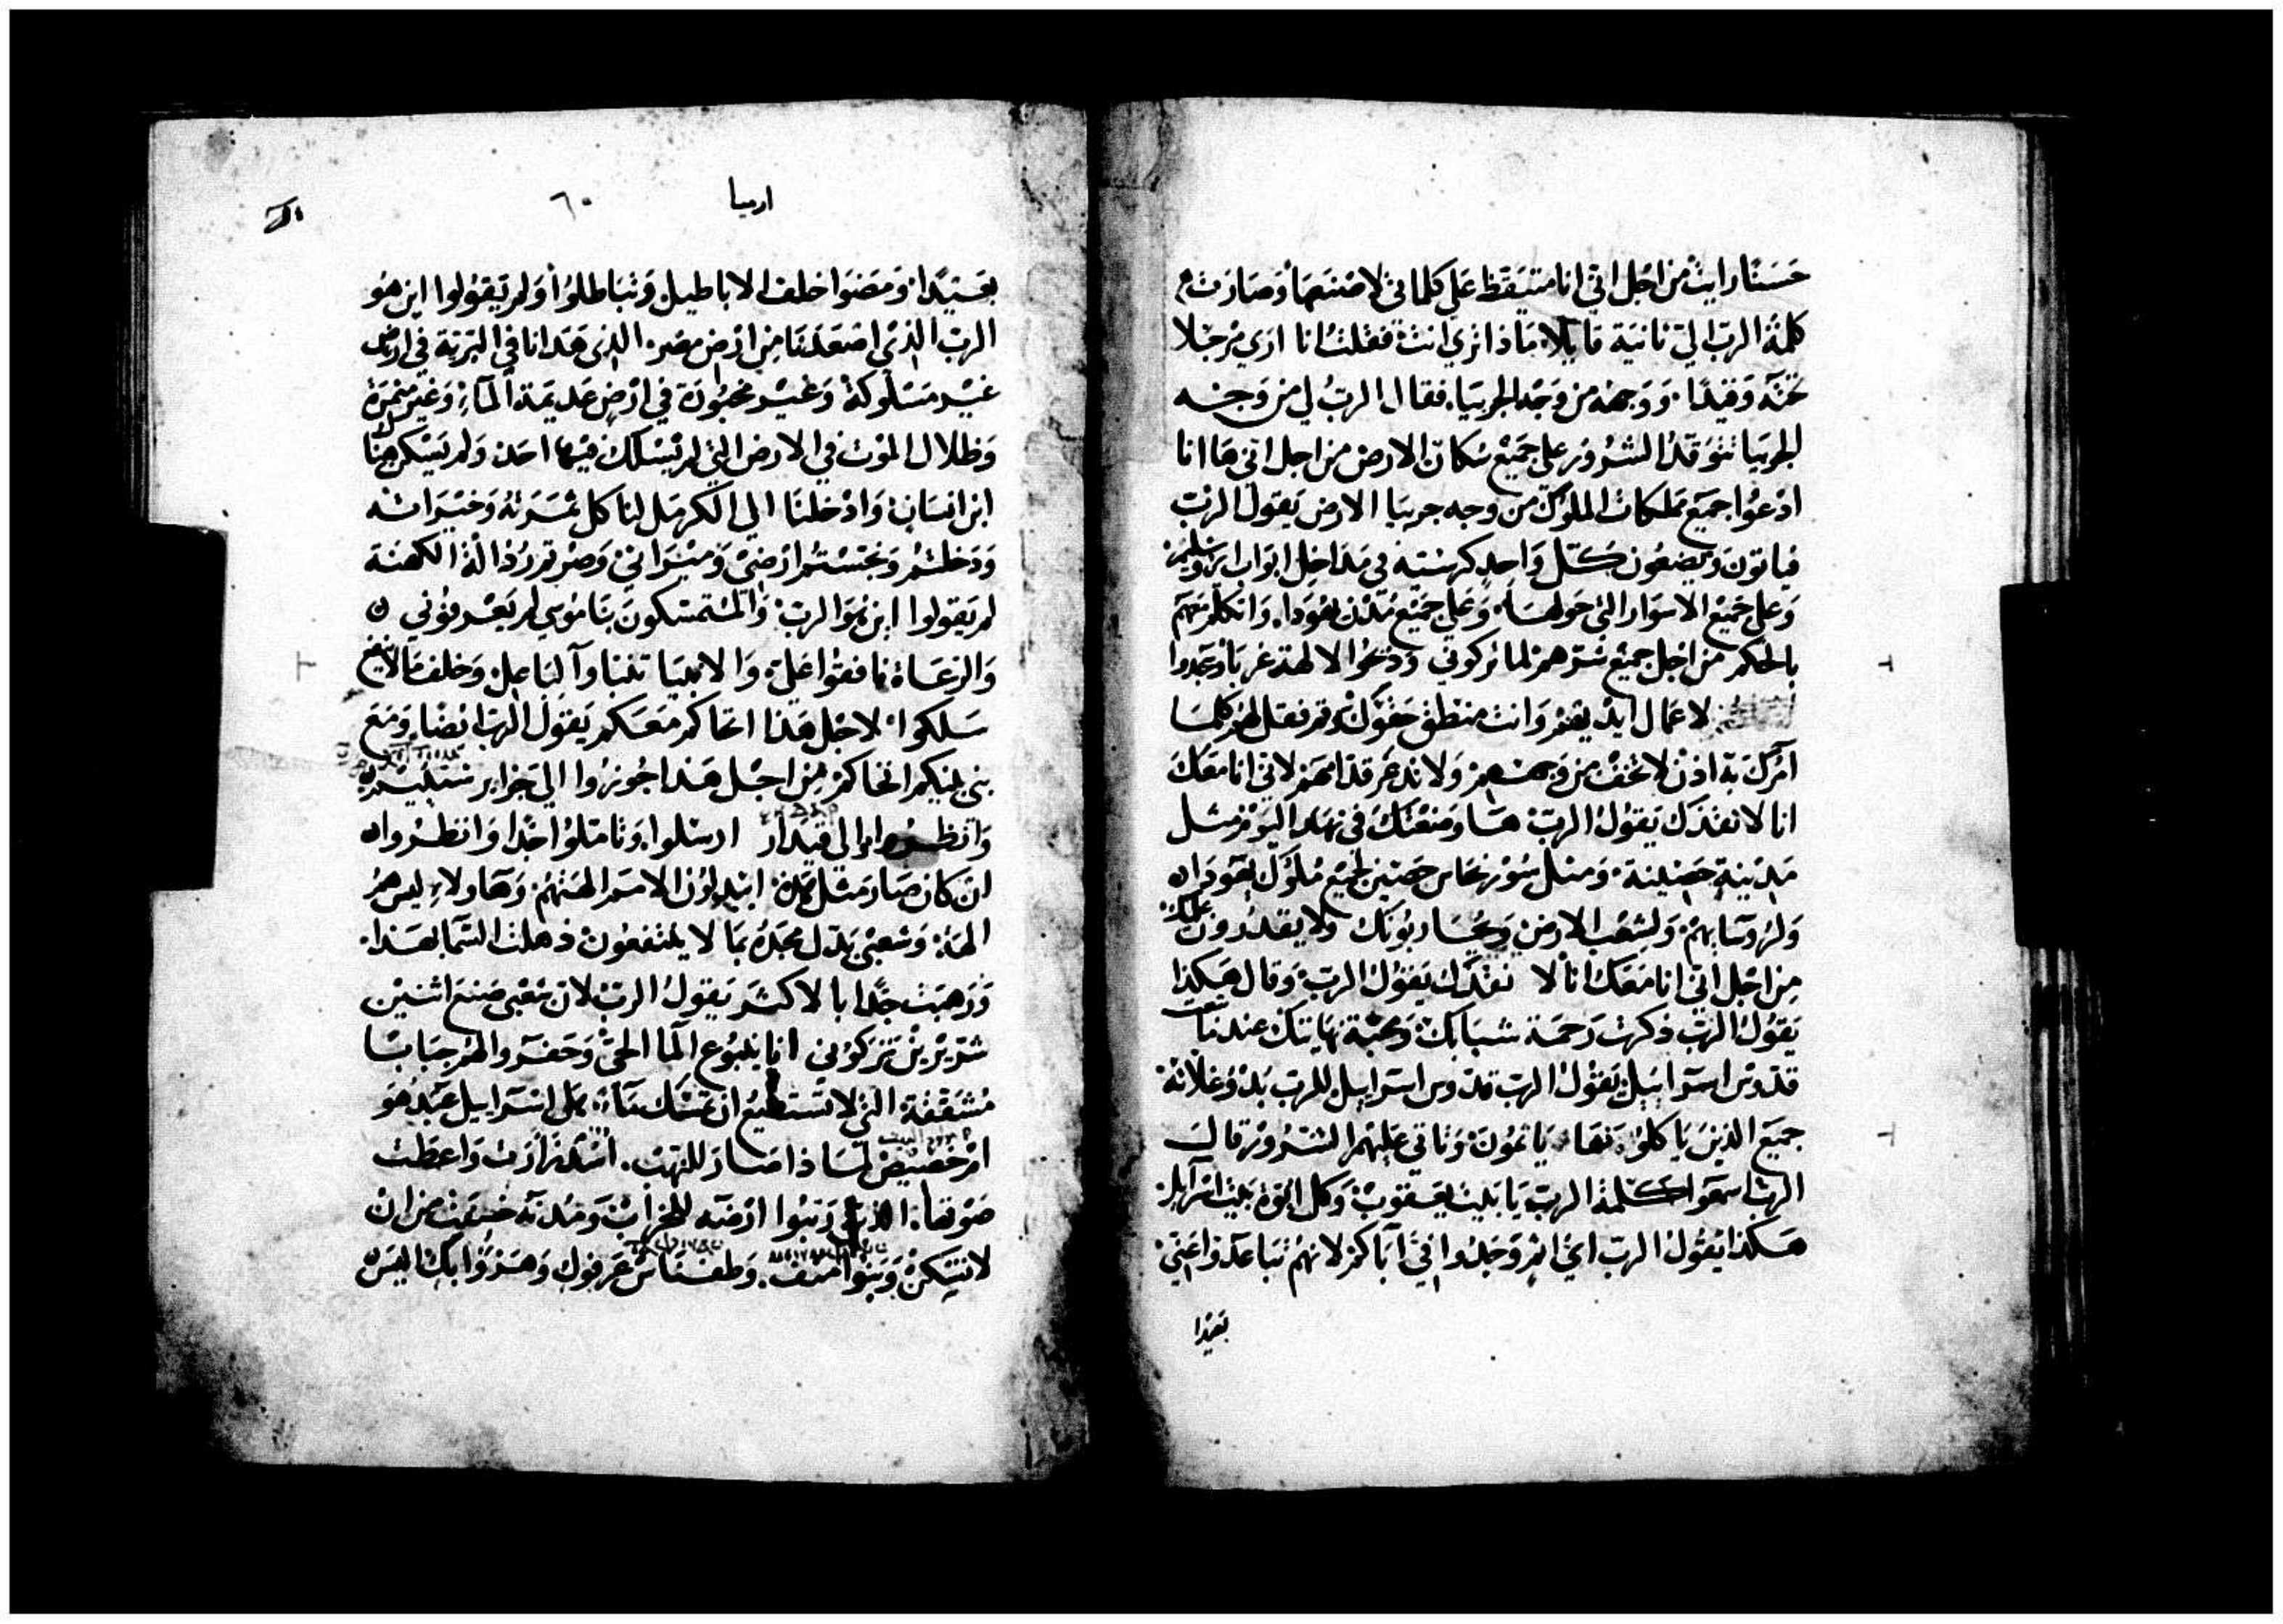 حسنا رايت من اجل اني انا متيقظ علي كلماتي لاصنعها وصارت
كلمة الرب الي ثانية قايلا ماذا تري انت فقلت انا اري مرجلا
تحته وقيدا ووجهه من وجه الجربيا فقال الرب لي من وجه
الجربيا تتوقد الشرور علي جميع سكان الارض من اجل اني ها انا
ادعوا جميع مملكات الملوك من وجه جربيا الارض يقول الرب
فياتون ويضعون كل واحد كرسيه في مداخل ابواب يروشليم
وعلي جميع الاسوار التي حولها وعلي جميع مدن يهودا واتكلم معهم
بالحكم من اجل جميع شرهم لما تركوني وذبحوا لالهة غربا وسجدوا
لاعمال ايديهم وانت منطق حقوك وقم فقل لهم كلما
آمرك به اذن لا تخف من وجههم ولا تذعر قدامهم لاني انا معك
انا لانقذك يقول الرب ها وضعتك في نهار اليوم مثل
مدينة حصينة ومثل سور نحاس حصين لجميع ملوك يهودا
ولروسايهم ولشعب الارض ويحاربونك ولا يقدرون عليك
من اجل اني انا معك انا لا نقذك يقول الرب وقال هكذا
يقول الرب ذكرت رحمة شبابك ومحبة نهايتك عند تباعك
قدوس اسراييل يقول الرب قدوس اسراييل للرب بدو غلاته
جميع الذين ياكلونها ياثمون وتاتي عليهم الشرور قال
الرب اسمعوا كلمة الرب يا بيت يعقوب وكل ابوة بيت اسرايل
هكذا يقول الرب اي اثم وجدوا في آباكم لانهم تباعدوا عني
بعيدا
ارميا ٦٠
بعيدا ومضوا خلف الاباطيل وتباطلوا ولم يقولوا اين هو
الرب الذي اصعدنا من ارض مصر الذي هدانا في البرية في ارض
غير مسلوكة وغير مخبورة في ارض عديمة الماء وغير مثمرة
وظلال الموت في الارض التي لم يسلك فيها احد ولم يسكن هناك
ابن انسان وادخلنا الي الكرمل لنا كل ثمرته وخيراته
ودخلتم ونجستم ارضي وميراثي وصرتم رذالة الكهنة
لم يقولوا اين هو الرب والمتمسكون بناموسي لم يعرفوني
والرعاة نافقوا علي والانبيا تنبا وآ لباعل وخلف ما لا ينفع
سلكوا لاجل هذا احاكم معكم يقول الرب ايضا ومع
بني بنيكم احاكم من اجل هذا جوزوا الي جزاير
وانظروا والي قيدار ارسلوا وتاملوا جدا وانظروا
ان كان صار مثل هذه ابتدلون الامم الهتهم وهاولاء ليس هم
الهة وشعبي بدل مجده بما لا ينتفعون ذهلت السما بهذا
ورهبت جدا بالاكثر يقول الرب لان شعبي صنع اثنين
شريرين تركوني انا ينبوع الما الحي وحفروا لهم جبابا
مشققة التي لا تستطيع ان تمسك ماء هل اسراييل عبد هو
ام خصيص لماذا صار للنهب اسد زارت واعطت
صوتها الذي رتبوا ارضه للخراب ومدنه خسفت من ان
لا تسكن وبنوا منف وطفناس عرفوك وهزوا بك اليس